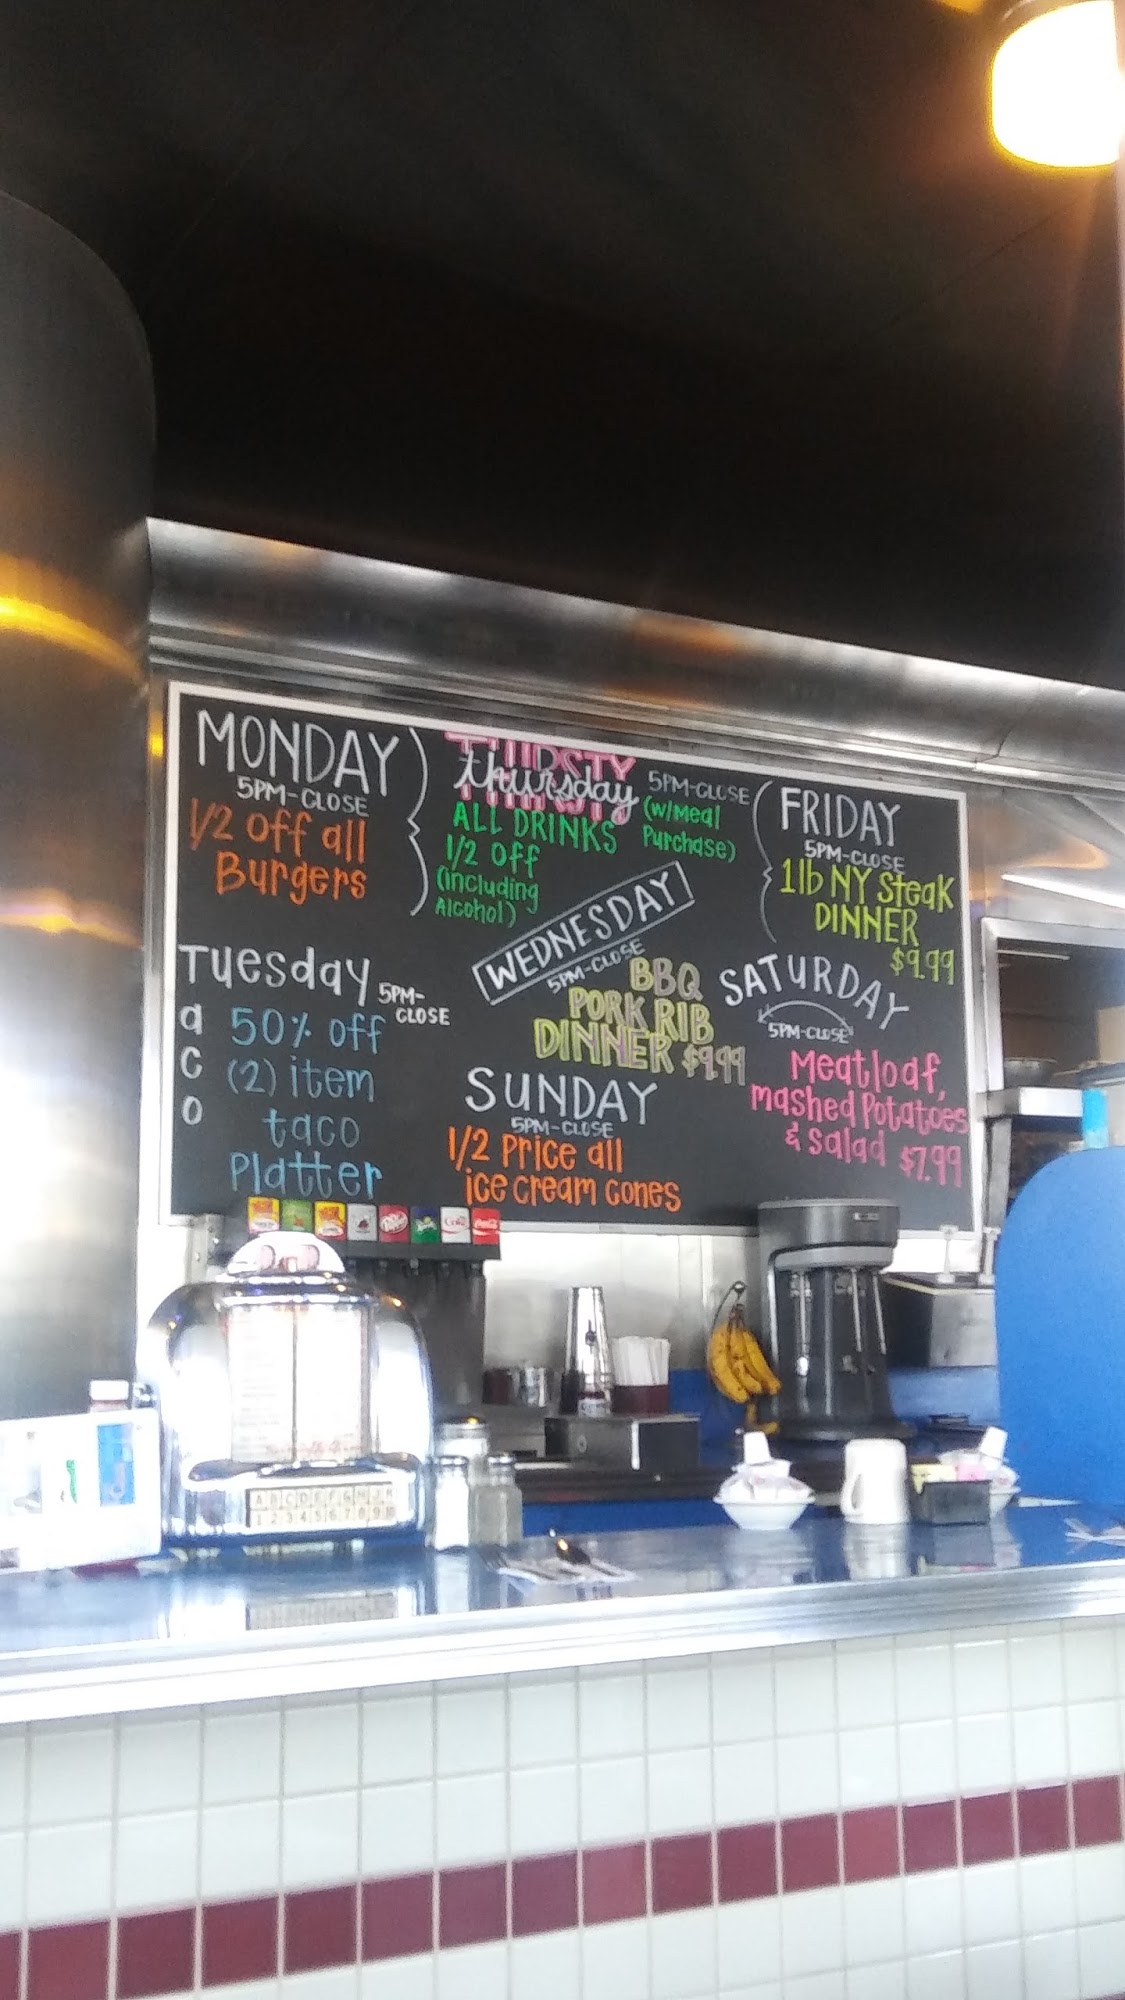 MONDAY
5PM-CLOSE
1/2 off all
Burgers
THIRSTY
thursday
5PM-CLOSE
(w/Meal
Purchase)
ALL DRINKS
1/2 off
(including
Alcohol)
FRIDAY
5PM-CLOSE
1lb NY Steak
DINNER
$9.99
Tuesday
5PM-
CLOSE
a
c
o
50% off
(2) item
taco
Platter
WEDNESDAY
5PM-CLOSE
BBQ
PORK RIB
DINNER $9.99
SATURDAY
5PM-CLOSE
Meatloaf,
mashed Potatoes
& salad $7.99
SUNDAY
5PM-CLOSE
1/2 Price all
ice cream cones
Dr Pepper
Coke
Coca-Cola
A B C D E F G H J K
1 2 3 4 5 6 7 8 9 0